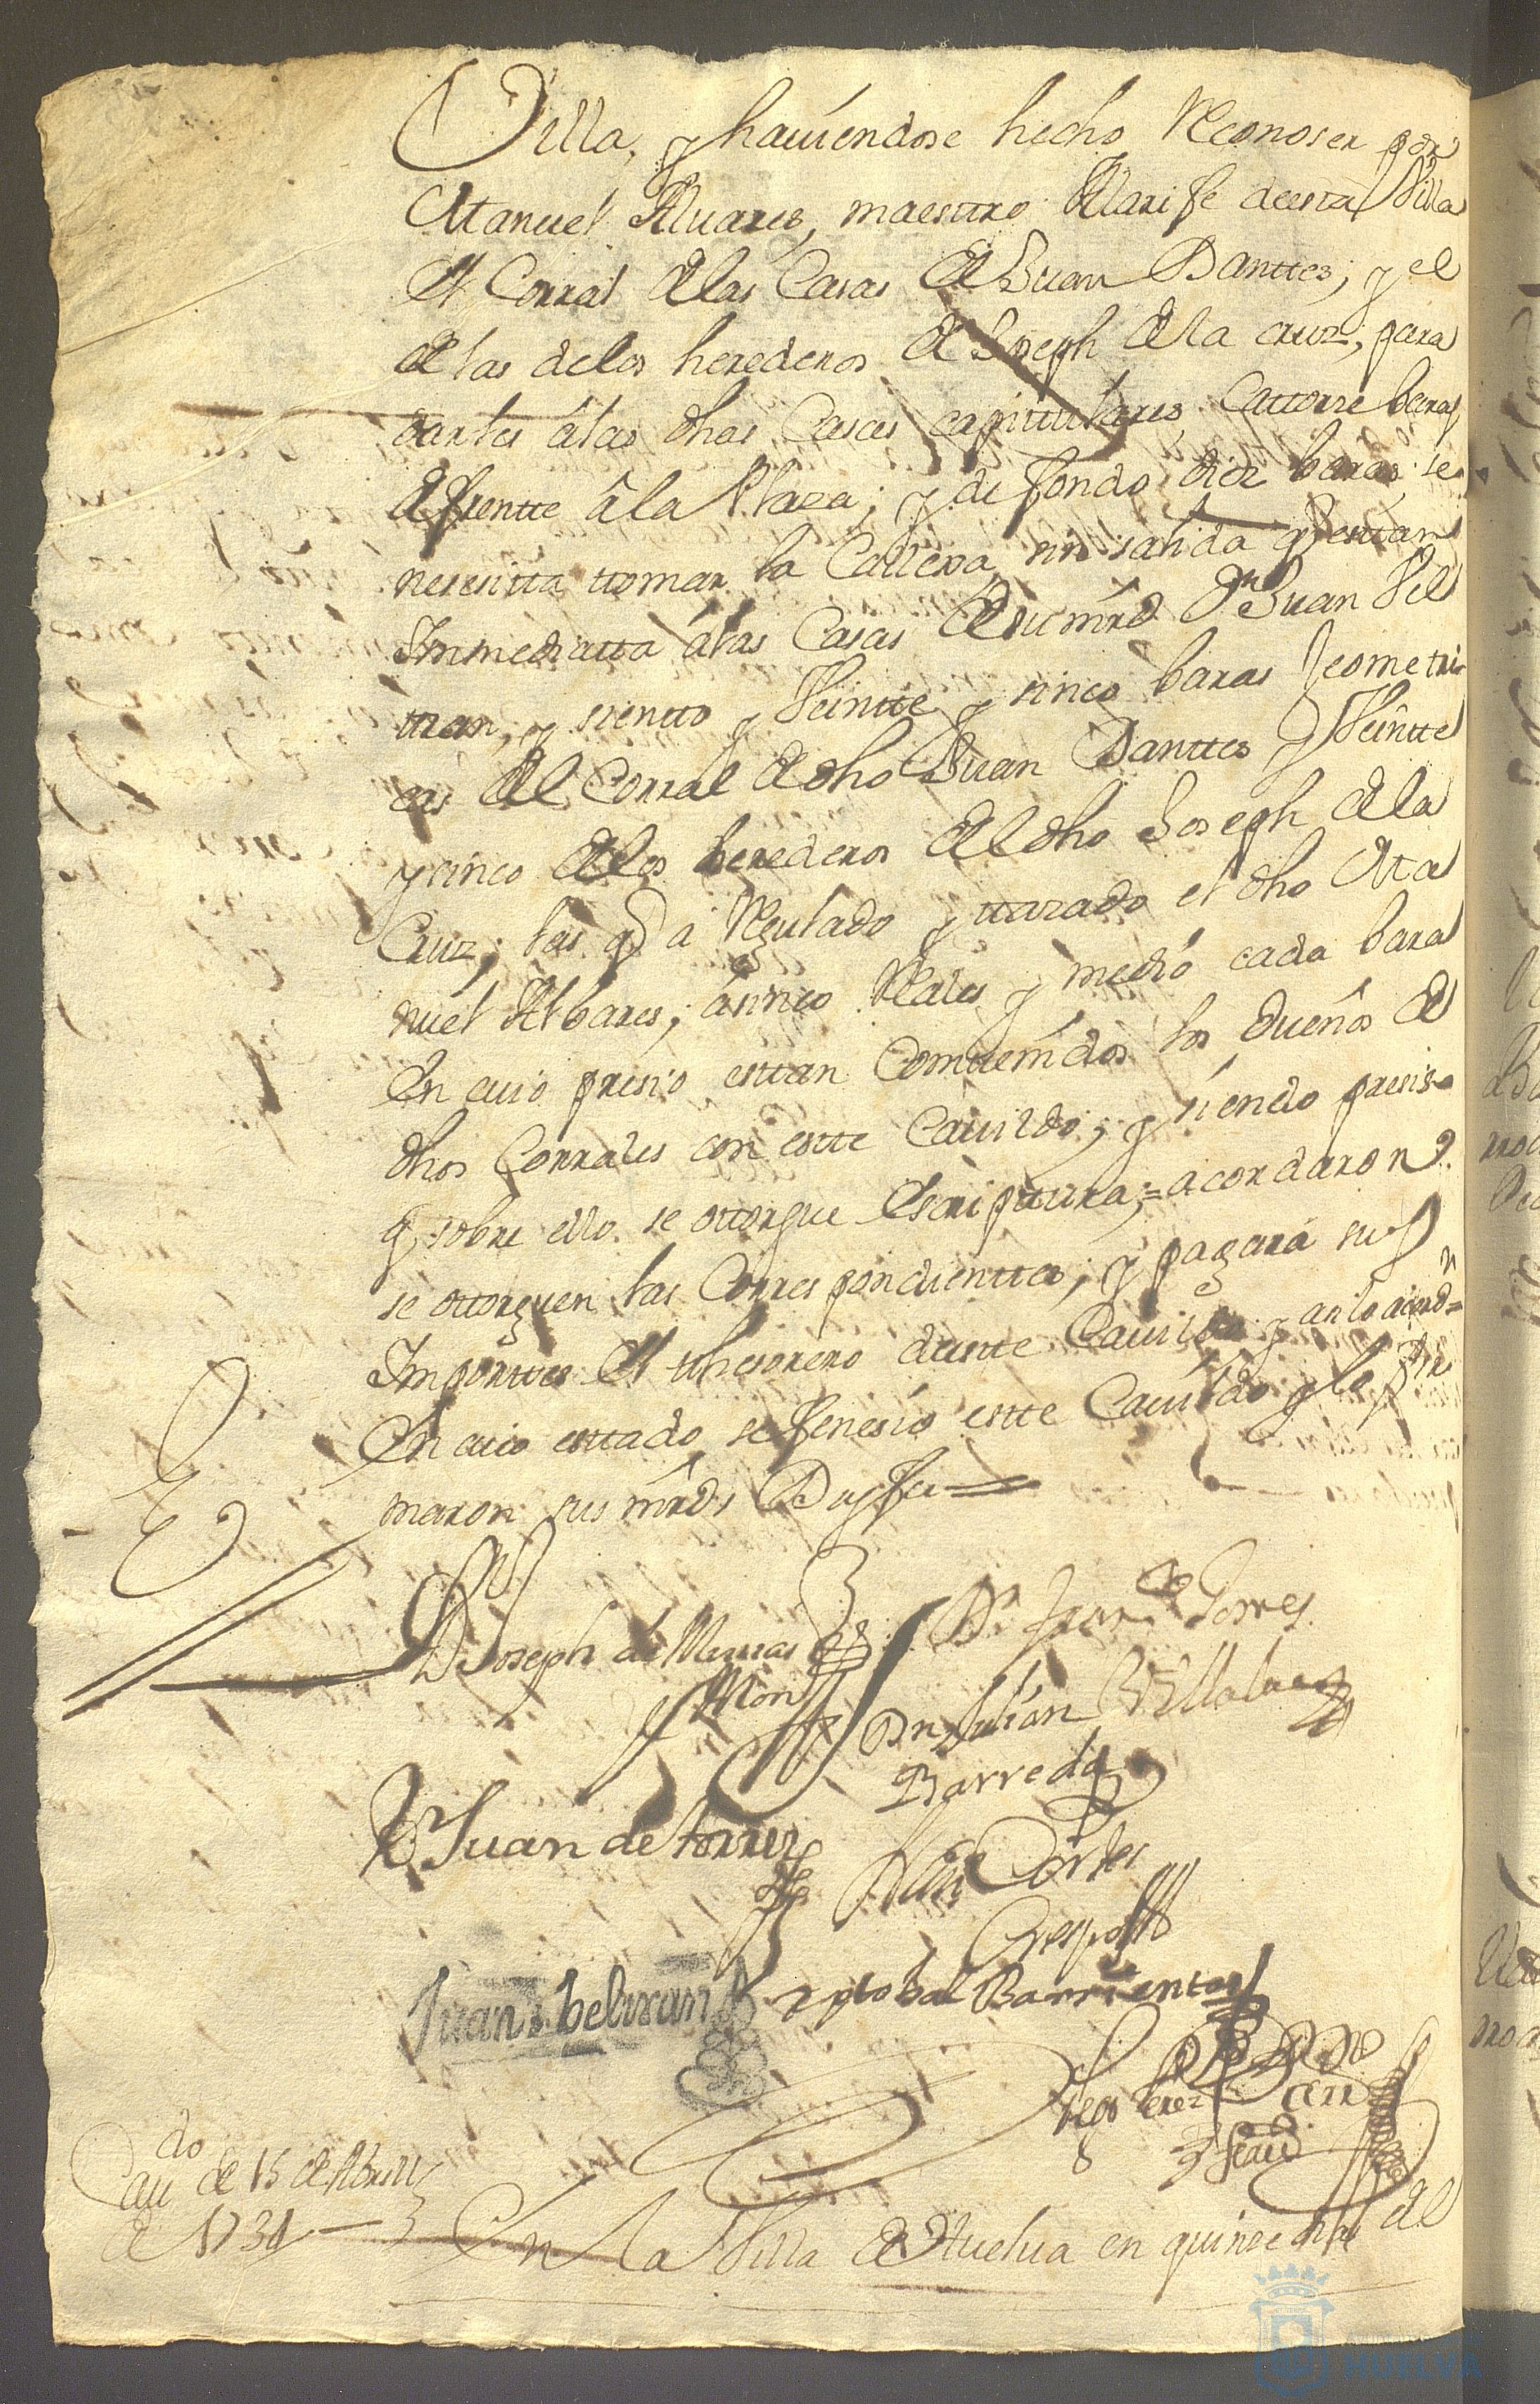 Villa, y haviendose hecho Reconoser por
Manuel Alvares, maestro Alarife de esta Villa
el Corral de las Casas de Juan Banttes; y el
de las de los herederos de Joseph de la cruz, para
darles á las dhas Casas capitulares Cattorze baras
de frentte â la Plaza; y de fondo diez baras se
nesesitta ttomar la Calleja sin salida q esttan
Immediatta á las Casas de su mrd Dn Juan Vel
tran, y siento y Veintte y sinco baras Jeometri
cas del Corral de dho Juan Banttes y Veintte
y sinco de los herederos del dho Joseph de la
Cruz, las q a Regulado y ttazado el dho Ma
nuel Albares; á sinco Reales y medio cada bara
En cuio presio esttan Combenidos los dueños de
dhos Corrales con estte Cavildo; y siendo presiso
q sobre ello se ottorgue Escripttura; = acordaron
se ottorguen las Correspondienttes; y pagará sus
Importtes el thesorero de estte Cavildo y asi lo acordn =
En cuio esttado se fenesio estte Cavildo y lo fir
maron sus mrds Doy fee =
Dn Joseph de
Dn Juan Torres
Dn Julián Villalva
Barreda
Juan de torres
Cortes
Crespo
Juan beltran
Xptobal Barrientos
Diego Perez
Cavdo de 15 de Abrill
de 1731
En la Villa de Huelva en quinze dias del
HUELVA